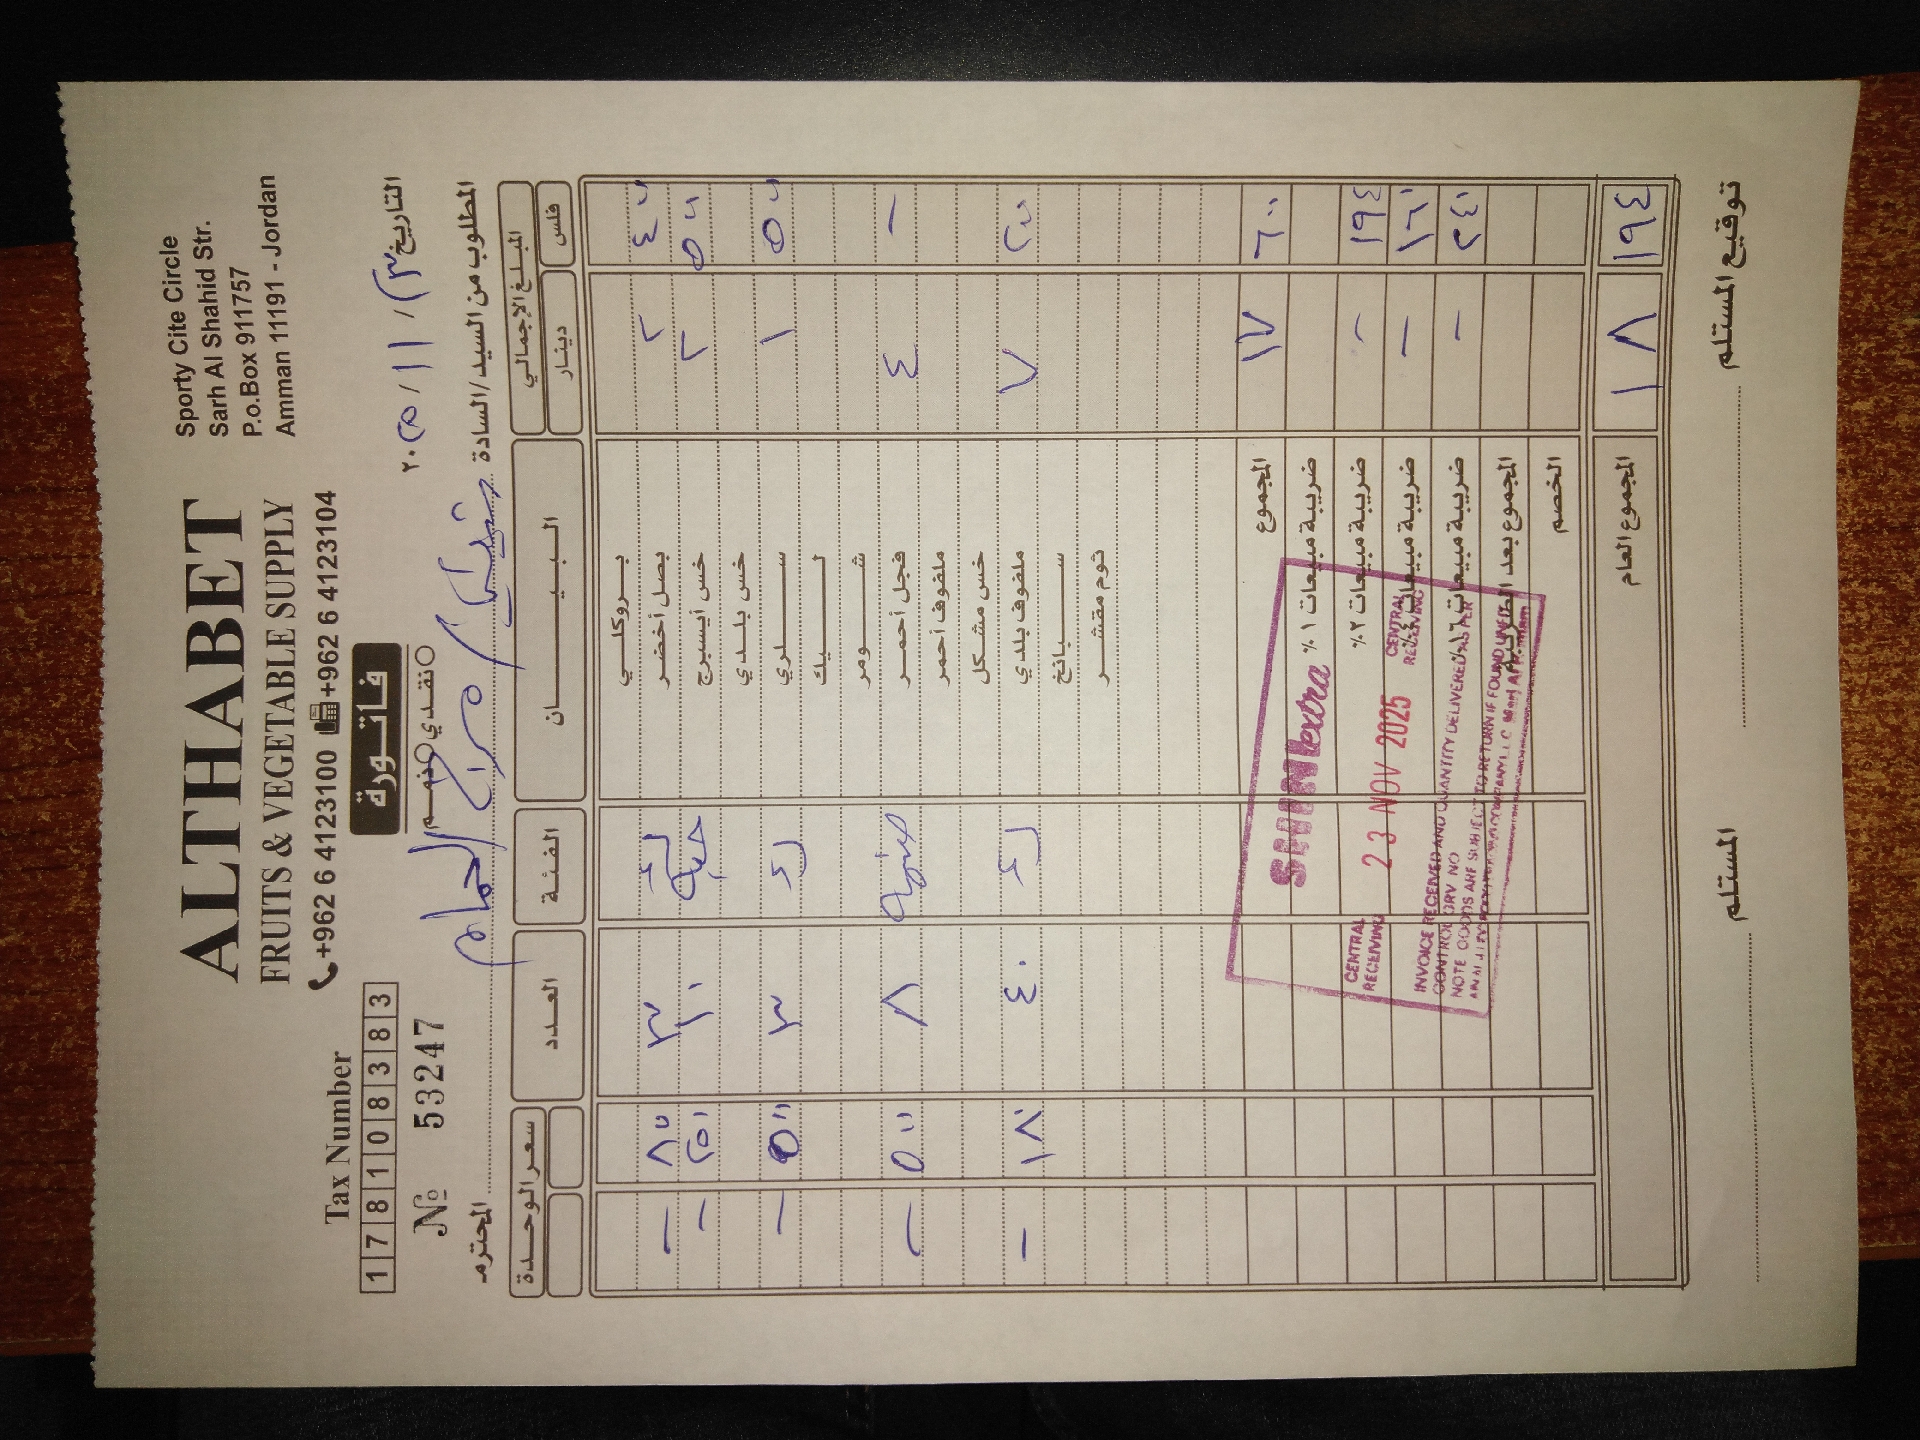 ALTHABET
FRUITS & VEGETABLE SUPPLY
+962 6 4123100 +962 6 4123104
Sporty Cite Circle
Sarh Al Shahid Str.
P.o.Box 911757
Amman 11191 - Jordan
Tax Number
1 7 8 1 0 8 3 8 3
№ 53247
فاتورة
نقدي ذمم
التاريخ ٢٣ / ١١ / ٢٠٢٥
المطلوب من السيد/السادة المحترم
المبلغ الإجمالي البيـــــان الفئة العدد سعر الوحدة
فلس دينار
بروكلي
٤٠٠ ٢ بصل أخضر ٣ ٨٠٠ -
٥٠٠ ٢ خس أيسبرج حبة ١٠ ٢٥٠ -
خس بلدي
٥٠٠ ١ سلري ٣ ٥٠٠ -
ليك
شومر
- ٤ فجل أحمر ٨ ٥٠٠ -
ملفوف أحمر
خس مشكل
٢٠٠ ٧ ملفوف بلدي ٤٠ ١٨٠ -
سبانخ
ثوم مقشر
٦٠٠ ١٧ المجموع
ضريبة مبيعات ١ %
١٩٤ - ضريبة مبيعات ٢ %
١٦٠ - ضريبة مبيعات
٢٤٠ - ضريبة مبيعات
المجموع بعد الضريبة
الخصم
١٩٤ ١٨ المجموع العام
extra
CENTRAL RECEIVING
23 NOV 2025
CENTRAL RECEIVING
INVOICE RECEIVED AND QUANTITY DELIVERED AS PER
CONTROL DRV NO
NOTE GOODS ARE SUBJECT TO RETURN IF FOUND UNFIT
توقيع المستلم
المستلم